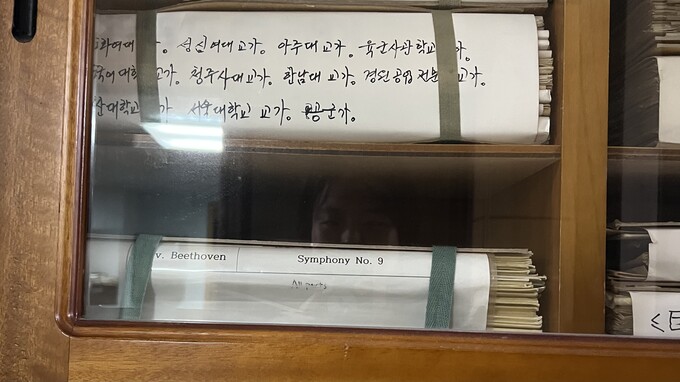 화여대 가. 성신여대교가. 아주대교가. 육군사관학교 가.
국여대 교가. 청주사대교가. 한남대 교가. 경민공업전문 교가.
대학교 가. 서울대학교 교가. 공군가.
v. Beethoven Symphony No. 9
All parts